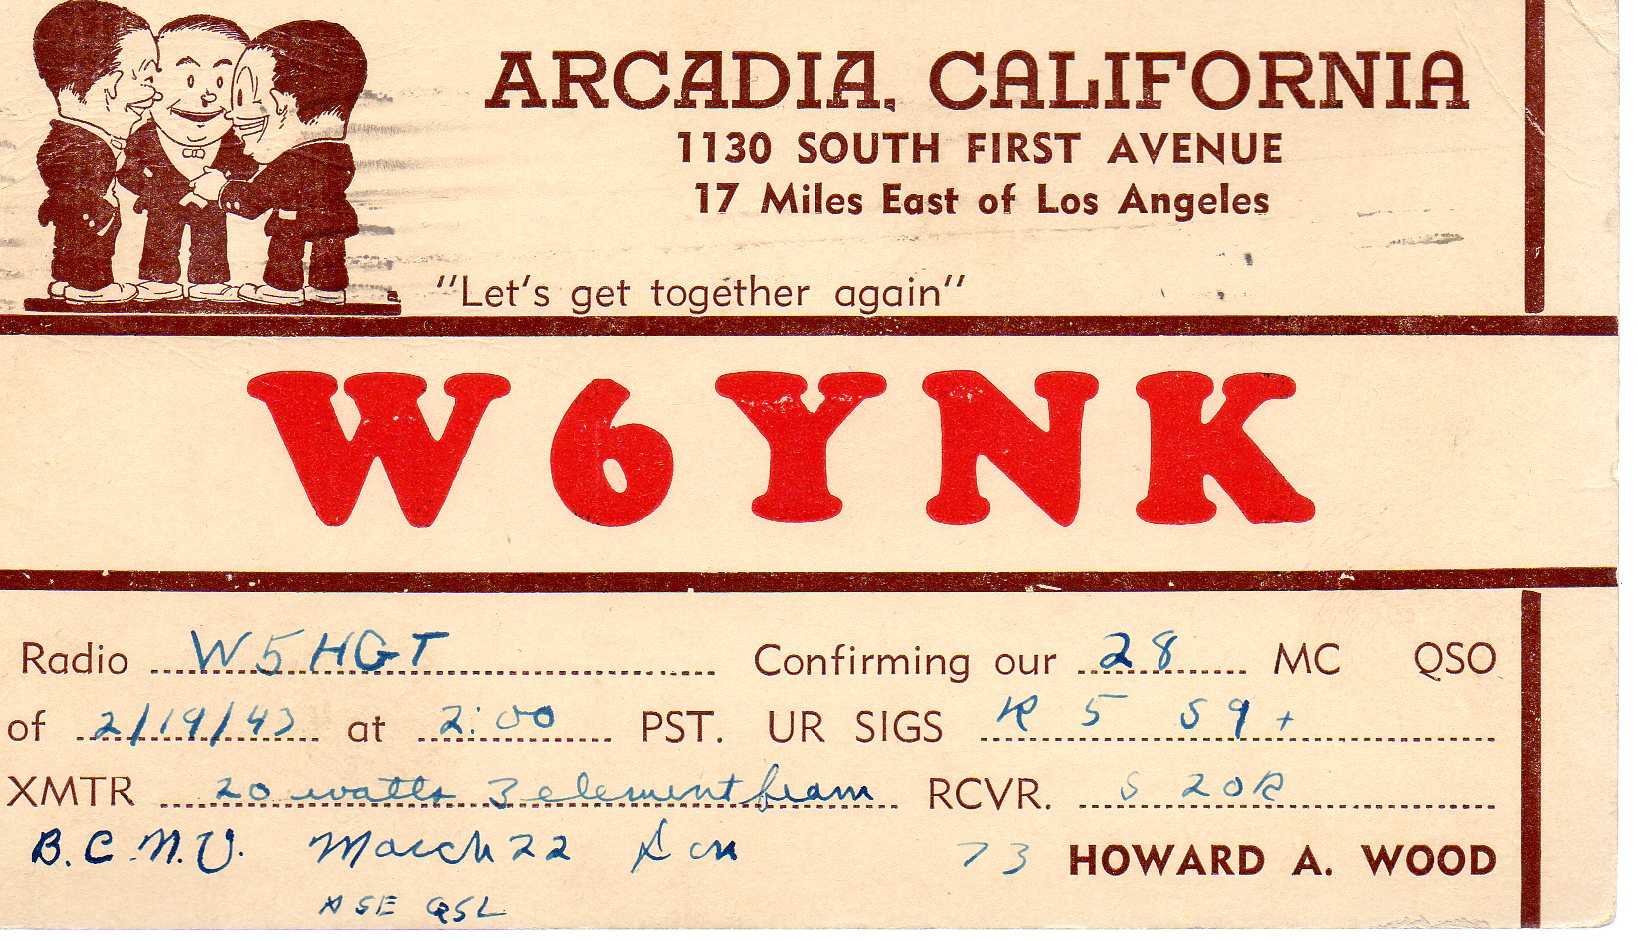 ARCADIA, CALIFORNIA
1130 SOUTH FIRST AVENUE
17 Miles East of Los Angeles
"Let's get together again"
W6YNK
Radio W5HGT Confirming our 28 MC QSO
of 2/19/47 at 2:00 PST. UR SIGS R 5 S9+
XMTR 20 watts 3 element beam RCVR. S 20R
B.C.N.U. March 22 73 HOWARD A. WOOD
QSL